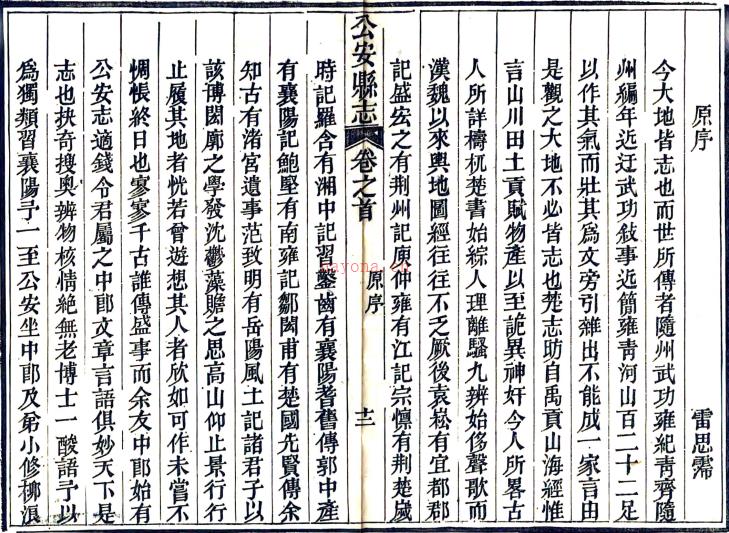 原序
雷思霈
今大地皆志也而世所傳者隨州武功雍紀靑齊隨
州編年近迂武功敍事近簡雍靑河山百二十二足
以作其氣而壯其爲文旁引雜出不能成一家言由
是觀之大地不必皆志也楚志昉自禹貢山海經惟
言山川田土貢賦物產以至詭異神奸今人所畧古
人所詳檮杌楚書始綜人理離騷九辨始侈聲歌而
漢魏以來輿地圖經往往不乏厥後袁崧有宜都郡
記盛宏之有荆州記庾仲雍有江記宗懔有荆楚歲
公安縣志
卷之首
原序
十二
時記羅含有湘中記習鑿齒有襄陽耆舊傳郭中產
有襄陽記鮑堅有南雍記鄒閎甫有楚國先賢傳余
知古有渚宮遺事范致明有岳陽風土記諸君子以
該博閎廓之學發沈鬱藻贍之思高山仰止景行行
止履其地者恍若曾遊想其人者欣如可作未嘗不
惆悵終日也寥寥千古誰傳盛事而余友中郎始有
公安志適錢令君屬之中郎文章言語俱妙天下是
志也抉奇搜奥辨物核情絶無老博士一酸語予以
爲獨類習襄陽予一至公安坐中郎及弟小修柳浪
nayona.cn